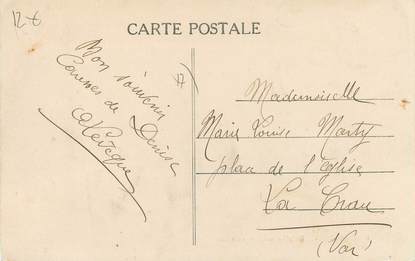 12 €
CARTE POSTALE
Bon souvenir
Caresses de Denise
17
Mademoiselle
Marie Louise Marty
place de l'église
La Crau
(Var)